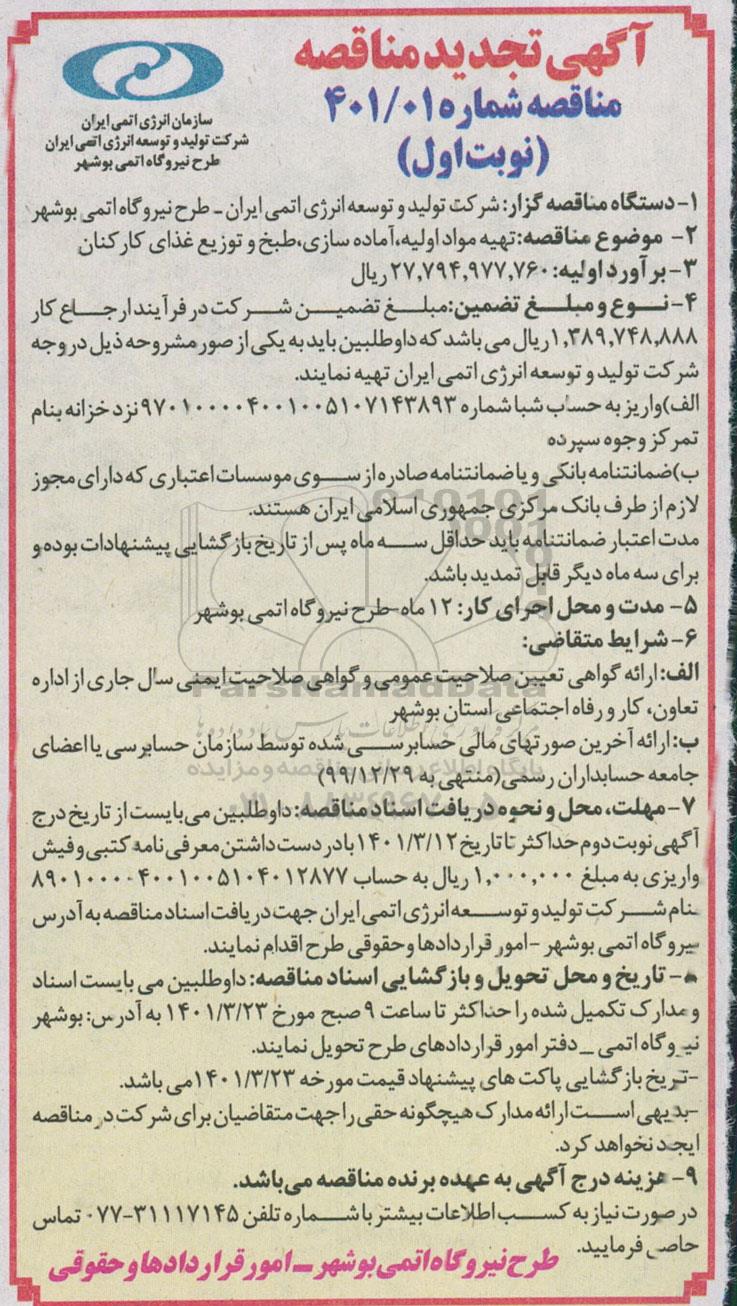 آگهی تجدید مناقصه
مناقصه شماره ۴۰۱/۰۱
(نوبت اول)
سازمان انرژی اتمی ایران
شرکت تولید و توسعه انرژی اتمی ایران
طرح نیروگاه اتمی بوشهر
۱- دستگاه مناقصه گزار: شرکت تولید و توسعه انرژی اتمی ایران - طرح نیروگاه اتمی بوشهر
۲- موضوع مناقصه: تهیه مواد اولیه، آماده سازی، طبخ و توزیع غذای کارکنان
۳- برآورد اولیه: ۲۷,۷۹۴,۹۷۷,۷۶۰ ریال
۴- نوع و مبلغ تضمین: مبلغ تضمین شرکت در فرآیند ارجاع کار
۱,۳۸۹,۷۴۸,۸۸۸ ریال می باشد که داوطلبین باید به یکی از صور مشروحه ذیل در وجه
شرکت تولید و توسعه انرژی اتمی ایران تهیه نمایند.
الف) واریز به حساب شبا شماره ۹۷۰۱۰۰۰۰۴۰۰۱۰۰۵۱۰۷۱۴۳۸۹۳ نزد خزانه بنام
تمرکز وجوه سپرده
ب) ضمانتنامه بانکی و یا ضمانتنامه صادره از سوی موسسات اعتباری که دارای مجوز
لازم از طرف بانک مرکزی جمهوری اسلامی ایران هستند.
مدت اعتبار ضمانتنامه باید حداقل سه ماه پس از تاریخ بازگشایی پیشنهادات بوده و
برای سه ماه دیگر قابل تمدید باشد.
۵- مدت و محل اجرای کار: ۱۲ ماه-طرح نیروگاه اتمی بوشهر
۶- شرایط متقاضی:
الف: ارائه گواهی تعیین صلاحیت عمومی و گواهی صلاحیت ایمنی سال جاری از اداره
تعاون، کار و رفاه اجتماعی استان بوشهر
ب: ارائه آخرین صورتهای مالی حسابرسی شده توسط سازمان حسابرسی یا اعضای
جامعه حسابداران رسمی (منتهی به ۹۹/۱۲/۲۹)
۷- مهلت، محل و نحوه دریافت اسناد مناقصه: داوطلبین می بایست از تاریخ درج
آگهی نوبت دوم حداکثر تا تاریخ ۱۴۰۱/۳/۱۲ با در دست داشتن معرفی نامه کتبی و فیش
واریزی به مبلغ ۱,۰۰۰,۰۰۰ ریال به حساب ۸۹۰۱۰۰۰۰۴۰۰۱۰۰۵۱۰۴۰۱۲۸۷۷
بنام شرکت تولید و توسعه انرژی اتمی ایران جهت دریافت اسناد مناقصه به آدرس
نیروگاه اتمی بوشهر - امور قراردادها و حقوقی طرح اقدام نمایند.
۸- تاریخ و محل تحویل و بازگشایی اسناد مناقصه: داوطلبین می بایست اسناد
و مدارک تکمیل شده را حداکثر تا ساعت ۹ صبح مورخ ۱۴۰۱/۳/۲۳ به آدرس: بوشهر
نیروگاه اتمی - دفتر امور قراردادهای طرح تحویل نمایند.
-تاریخ بازگشایی پاکت های پیشنهاد قیمت مورخه ۱۴۰۱/۳/۲۳ می باشد.
-بدیهی است ارائه مدارک هیچگونه حقی را جهت متقاضیان برای شرکت در مناقصه
ایجاد نخواهد کرد.
۹- هزینه درج آگهی به عهده برنده مناقصه می باشد.
در صورت نیاز به کسب اطلاعات بیشتر با شماره تلفن ۳۱۱۱۷۱۴۵-۰۷۷ تماس
حاصل فرمایید.
طرح نیروگاه اتمی بوشهر - امور قراردادها و حقوقی
ParsNamadData
پایگاه اطلاع رسانی مناقصه و مزایده